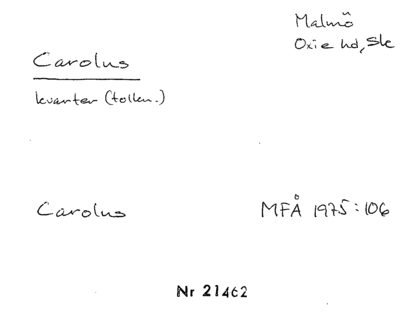 Malmö
Oxie hd, Sk
Carolus
kvarter (tolkn.)
Carolus MFÅ 1975:106
Nr 21462